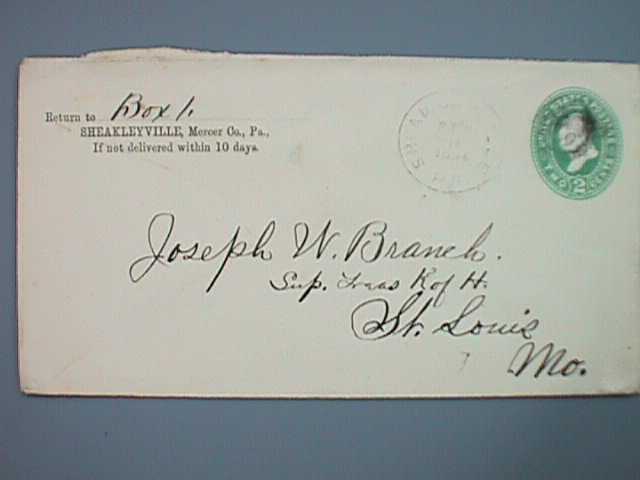 Return to Box 1.
SHEAKLEYVILLE, Mercer Co., Pa.,
If not delivered within 10 days.
Joseph W. Branch.
Sup. Treas K of H.
St. Louis
Mo.
TWO 2 CENTS